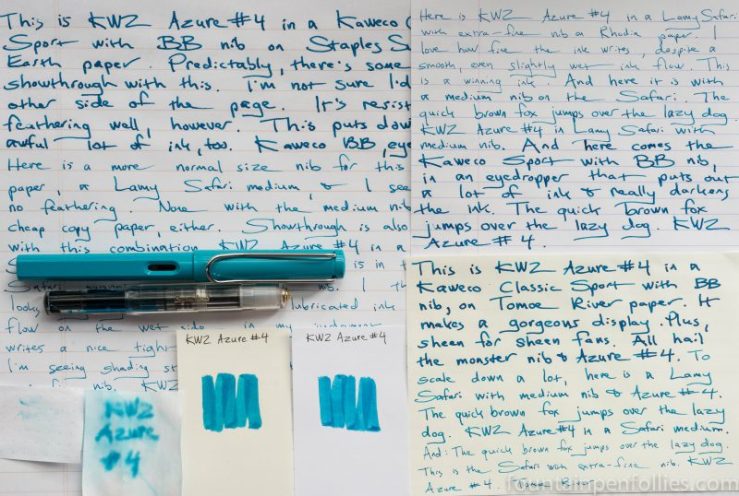 This is KWZ Azure #4 in a Kaweco
Sport with BB nib on Staples
Earth paper. Predictably, there's some
showthrough with this. I'm not sure I'd
other side of the page. It's resist
feathering well, however. This puts down
awful lot of ink, too. Kaweco BB, eye
Here is a more normal size nib for this
paper, a Lamy Safari medium, & I see
no feathering. Now with the medium nib
cheap copy paper, either. Showthrough is also
with this combination KWZ Azure #4 in a
is in t
looks
lubricated ink
flow on the wet side in my
writes a nice tight
I'm seeing shading
nib. KWZ
KWZ
Azure
#4
KWZ Azure #4
KWZ Azure #4
Here is KWZ Azure #4 in a Lamy Safari
with extra-fine nib on Rhodia paper. I
love how fine the ink writes, despite a
smooth, even slightly wet ink flow. This
is a winning ink. And here it is with
a medium nib on the Safari. The
quick brown fox jumps over the lazy dog.
KWZ Azure #4 in Lamy Safari with
medium nib. And here comes the
Kaweco Sport with BB nib,
in an eyedropper that puts out
a lot of ink & really darkens
the ink. The quick brown fox
jumps over the lazy dog. KWZ
Azure #4.
This is KWZ Azure #4 in a
Kaweco Classic Sport with BB
nib, on Tomoe River paper. It
makes a gorgeous display. Plus,
sheen for sheen fans. All hail
the monster nib & Azure #4. To
scale down a lot, here is a Lamy
Safari with medium nib & Azure #4.
The quick brown fox jumps over the lazy
dog. KWZ Azure #4 in a Safari medium.
And: The quick brown fox jumps over the lazy dog.
This is the Safari with extra-fine nib. KWZ
Azure #4. Tomoe River.
fountainpenfollies.com